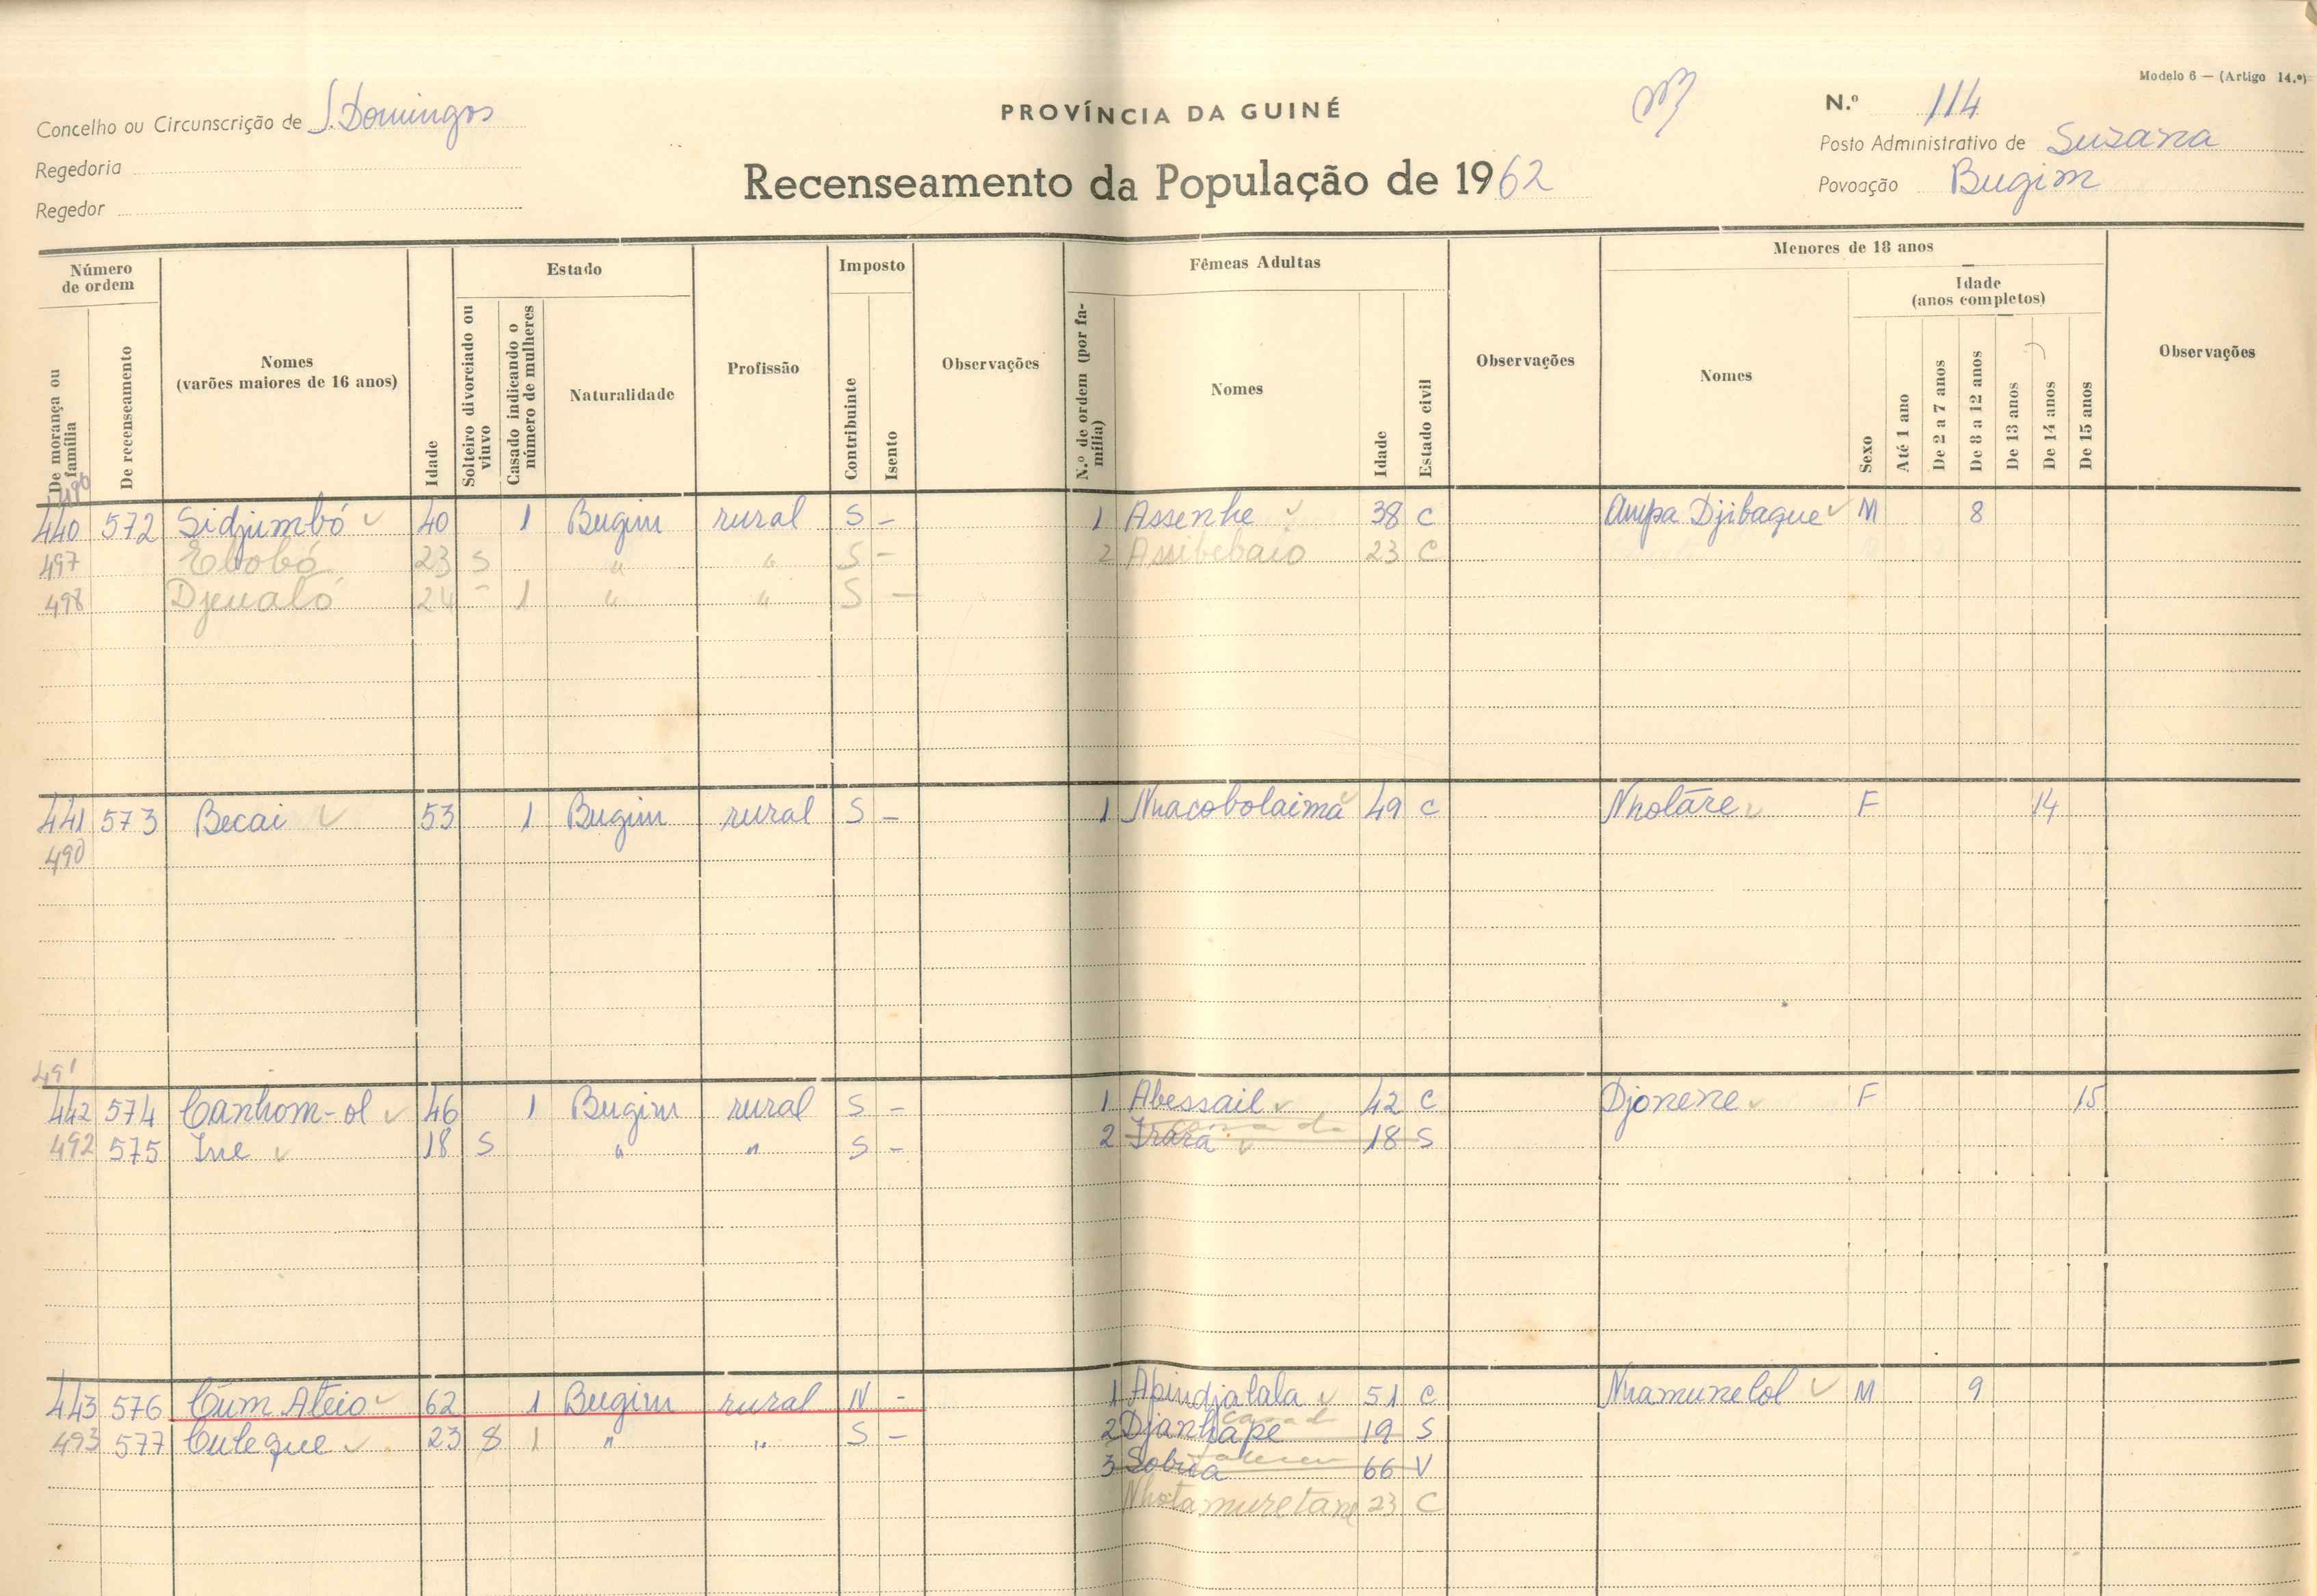 Modelo 6 — (Artigo 14.º)
Concelho ou Circunscrição de S. Domingos
PROVÍNCIA DA GUINÉ
N.º 114
Regedoria
Posto Administrativo de Suzana
Regedor
Recenseamento da População de 1962
Povoação Bugim
Número de ordem
Estado
Imposto
Fêmeas Adultas
Menores de 18 anos
Idade (anos completos)
De morança ou família
De recenseamento
Nomes (varões maiores de 16 anos)
Idade
Solteiro divorciado ou viuvo
Casado indicando o número de mulheres
Naturalidade
Profissão
Contribuinte
Isento
Observações
N.º de ordem (por família)
Nomes
Idade
Estado civil
Observações
Nomes
Sexo
Até 1 ano
De 2 a 7 anos
De 8 a 12 anos
De 13 anos
De 14 anos
De 15 anos
Observações
496
440 572 Sidjumbó 40 1 Bugim rural S - 1 Assenhe 38 C Ampa Djibague M 8
497 Ebobó 23 S " " S - 2 Assibebaio 23 C
498 Djenaló 24 - 1 " " S -
441 573 Becai 53 1 Bugim rural S - 1 Nhacobolaima 49 C Nholāre F 14
490
491
442 574 Canhom-ol 46 1 Bugim rural S - 1 Abessail 42 C Djonene F 15
492 575 Ine 18 S " " S - 2 Irará 18 S
443 576 Cum Ateio 62 1 Bugim rural N - 1 Apindjalala 51 C Nhamunelol M 9
493 577 Culegue 23 1 " " S - 2 Djanhape 19 S
3 Sobua 66 V
Nhotamuretane 23 C